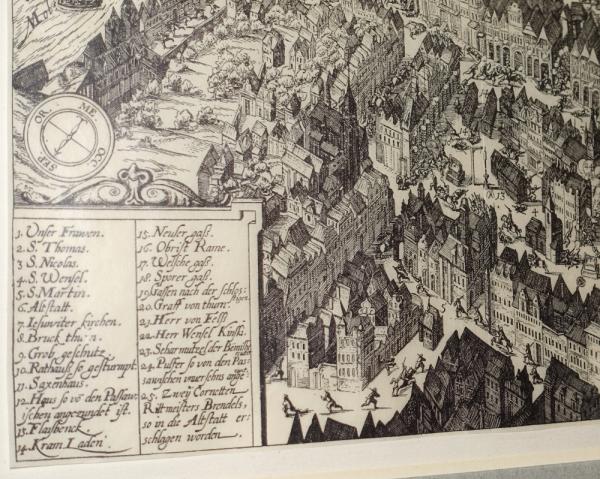 Mol
OR
ME
OCC
SEP
1. Unser Frawen.
2. S. Thomas.
3 S. Nicolas.
4. S. Wensel.
5. S. Martin.
6. Altstatt.
7. Iesuwiter kirchen.
8. Bruck thurn.
9. Grob geschütz.
10. Rathauß so gesturmpt
11. Saxenhaus.
12. Haus so vo den Passaw
ischen angezundet ist.
13. Flaisbenck.
14. Kram Laden.
15. Newer gaß.
16. Obrist Rame.
17. Welsche gaß.
18. Sporer gaß.
19. Gassen nach der schlos
stigen.
20. Graff von thurn
21. Herr von Felss
22. Herr Wensel Kinski.
23. Scharmützel der
24. Pulfer so von den Pas
sawischen
25. Zweij Cornetten
Rittmeisters Brendels,
so in die Altstatt er:
schlagen worden.
13